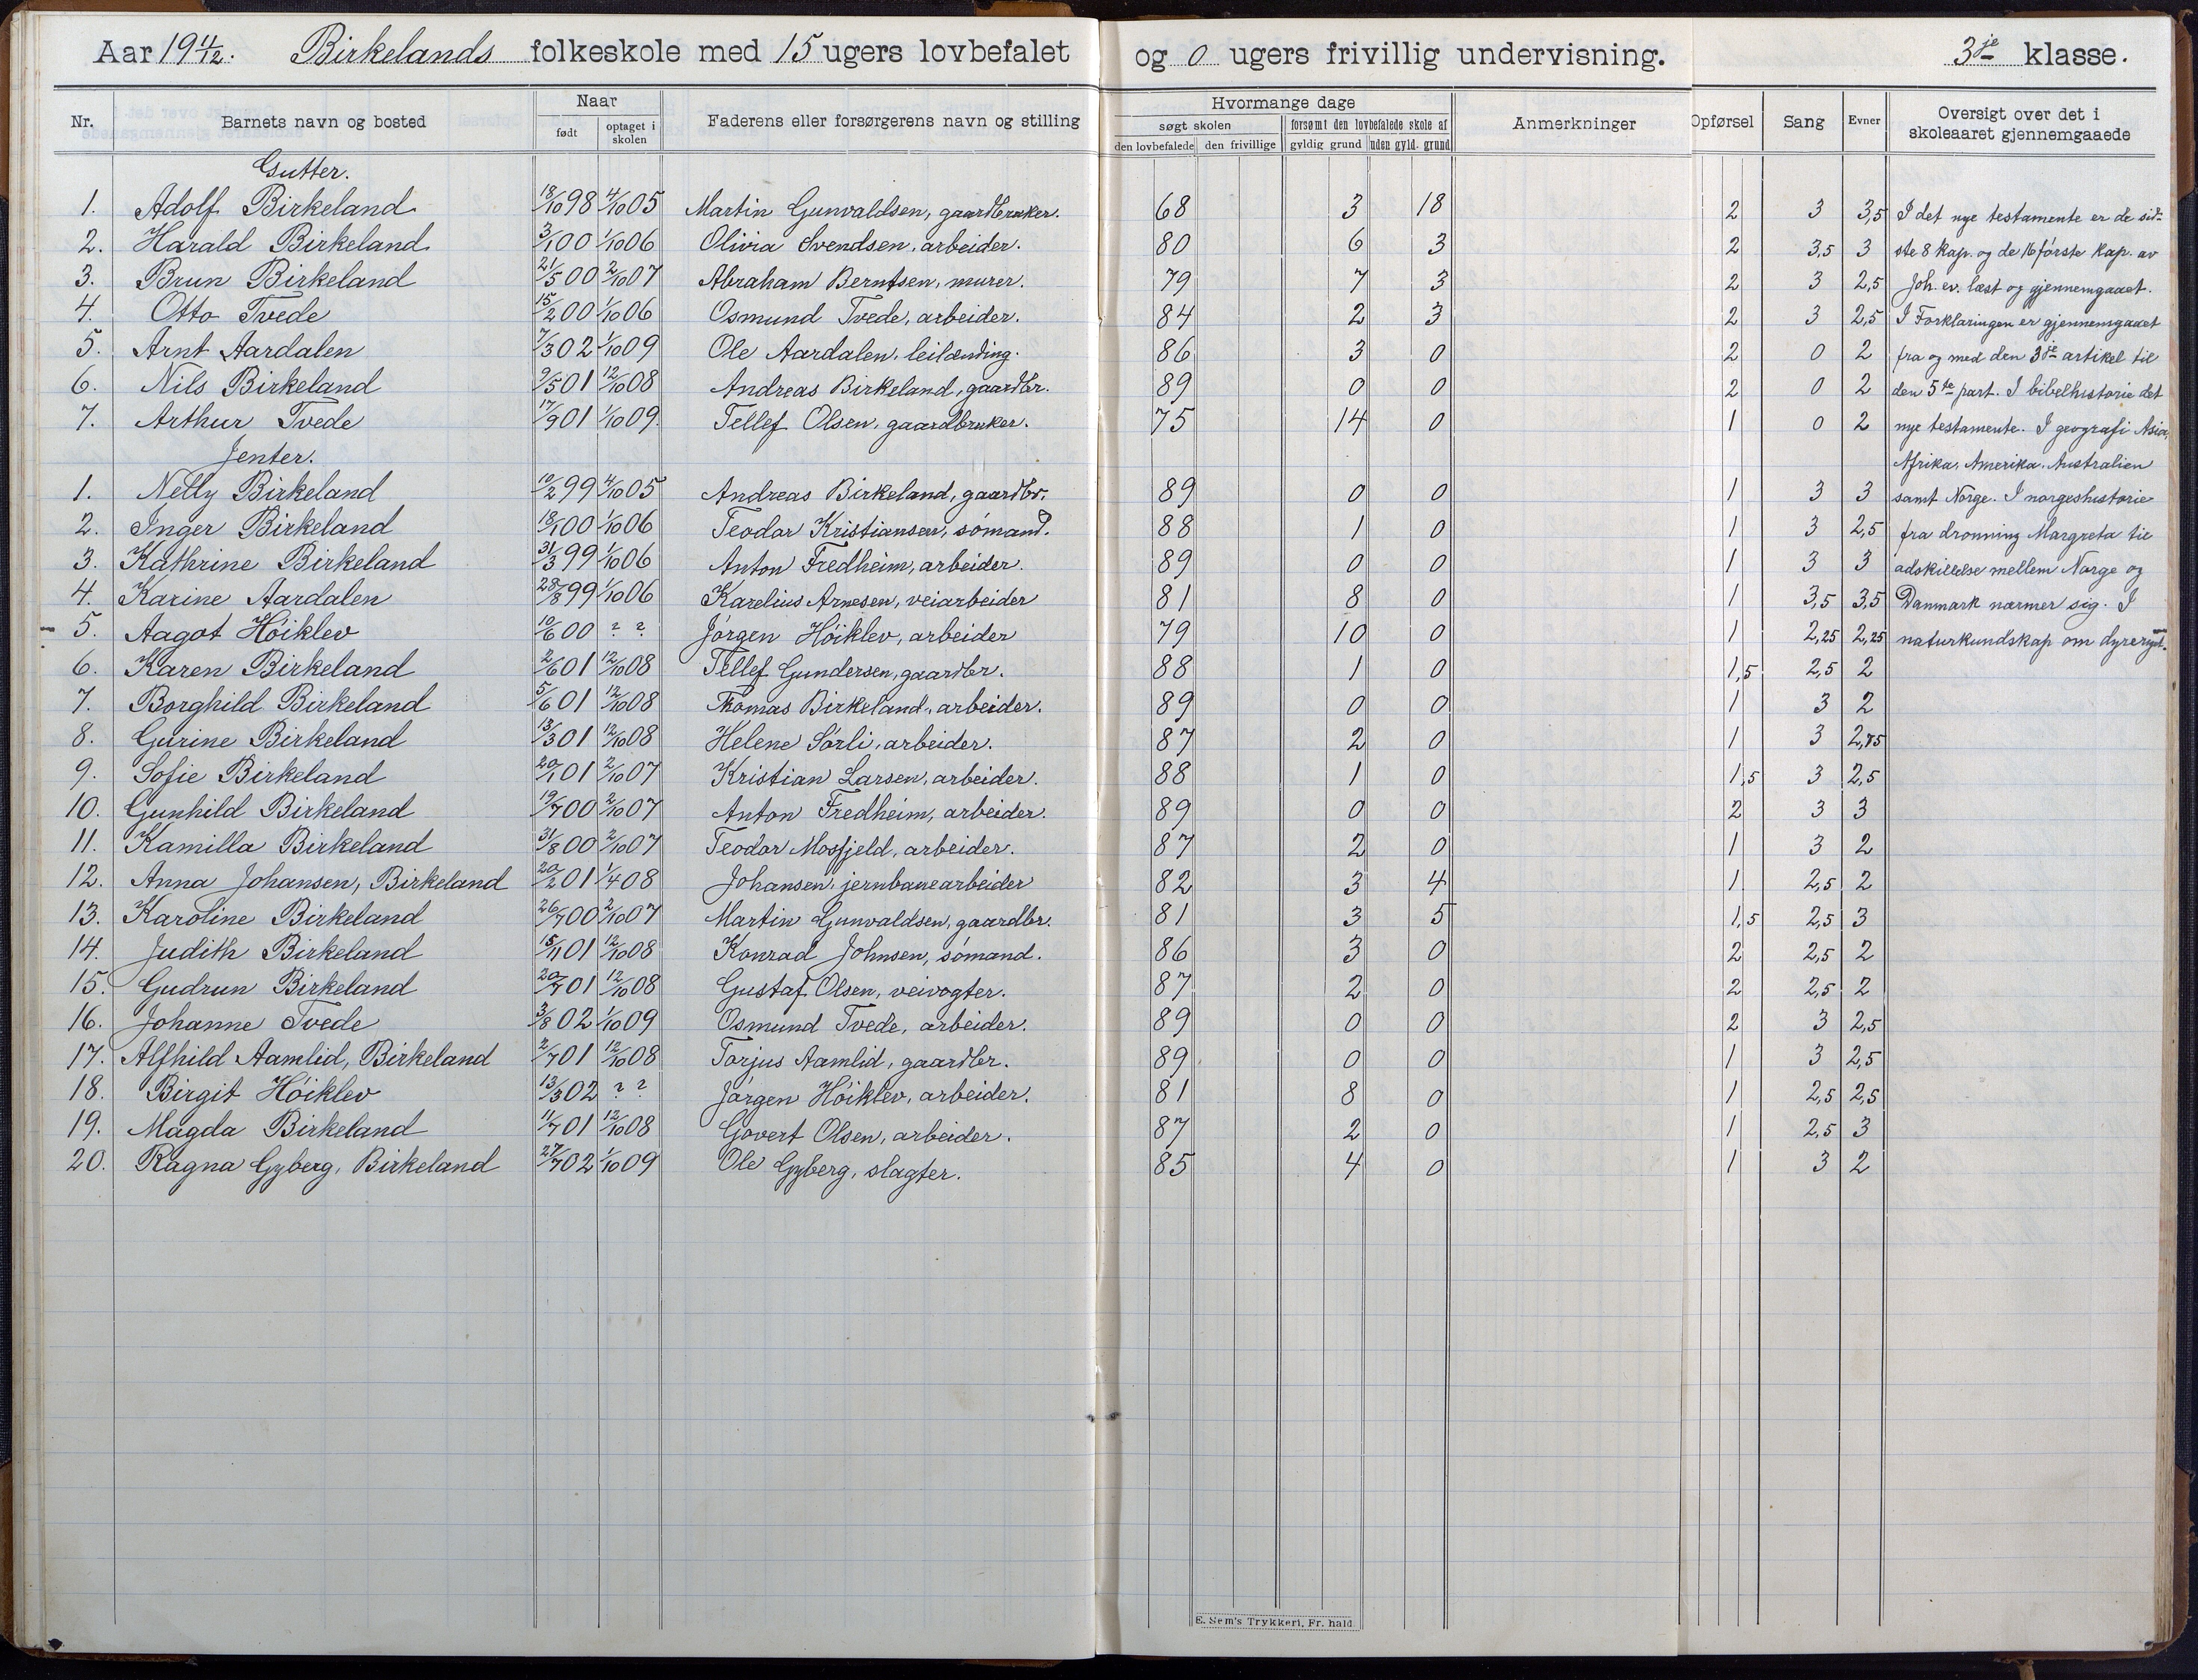 Aar 19 11/12. Birkelands folkeskole med 15 ugers lovbefalet og 0 ugers frivillig undervisning. 3je klasse.
Nr. Barnets navn og bosted Naar født optaget i skolen Faderens eller forsørgerens navn og stilling Hvormange dage søgt skolen den lovbefalede den frivillige forsømt den lovbefalede skole af gyldig grund uden gyld. grund Anmerkninger Opførsel Sang Evner Oversigt over det i skoleaaret gjennemgaaede
Gutter.
1. Adolf Birkeland 18/10 98 4/10 05 Martin Gunvaldsen, gaardbruker. 68 3 18 2 3 3,5 I det nye testamente er de sid-
2. Harald Birkeland 3/1 00 1/10 06 Olivia Svendsen, arbeider. 80 6 3 2 3,5 3 ste 8 kap. og de 16 første kap. av
3. Brun Birkeland 21/5 00 2/10 07 Abraham Berntsen, murer. 79 7 3 2 3 2,5 Joh. ev. læst og gjennemgaaet.
4. Otto Tvede 15/2 00 1/10 06 Osmund Tvede, arbeider. 84 2 3 2 3 2,5 I Forklaringen er gjennemgaaet
5. Arnt Aardalen 7/3 02 1/10 09 Ole Aardalen, leilænding. 86 3 0 2 0 2 fra og med den 3je artikel til
6. Nils Birkeland 9/5 01 12/10 08 Andreas Birkeland, gaardbr. 89 0 0 2 0 2 den 5te part. I bibelhistorie det
7. Arthur Tvede 17/9 01 1/10 09 Tellef Olsen, gaardbruker. 75 14 0 1 0 2 nye testamente. I geografi Asia,
Jenter. Afrika, Amerika, Australien
1. Nelly Birkeland 10/2 99 4/10 05 Andreas Birkeland, gaardbr. 89 0 0 1 3 3 samt Norge. I norgeshistorie
2. Inger Birkeland 18/1 00 1/10 06 Teodor Kristiansen, sømand. 88 1 0 1 3 2,5 fra dronning Margreta til
3. Kathrine Birkeland 31/3 99 1/10 06 Anton Fredheim, arbeider. 89 0 0 1 3 3 adskillelse mellem Norge og
4. Karine Aardalen 28/8 99 1/10 06 Karelius Arnesen, veiarbeider 81 8 0 1 3,5 3,5 Danmark nærmer sig. I
5. Aagot Høiklev 10/6 00 ? ? Jørgen Høiklev, arbeider 79 10 0 1 2,25 2,25 naturkundskap om dyreriget.
6. Karen Birkeland 2/6 01 12/10 08 Tellef Gundersen, gaardbr. 88 1 0 1,5 2,5 2
7. Borghild Birkeland 5/6 01 12/10 08 Thomas Birkeland, arbeider. 89 0 0 1 3 2
8. Gurine Birkeland 13/3 01 12/10 08 Helene Sørli, arbeider. 87 2 0 1 3 2,75
9. Sofie Birkeland 20/1 01 2/10 07 Kristian Larsen, arbeider. 88 1 0 1,5 3 2,5
10. Gunhild Birkeland 19/7 00 2/10 07 Anton Fredheim, arbeider. 89 0 0 2 3 3
11. Kamilla Birkeland 31/8 00 2/10 07 Teodor Mosfjeld, arbeider. 87 2 0 1 3 2
12. Anna Johansen, Birkeland 20/2 01 1/4 08 Johansen, jernbanearbeider 82 3 4 1 2,5 2
13. Karoline Birkeland 26/7 00 2/10 07 Martin Gunvaldsen, gaardbr. 81 3 5 1,5 2,5 3
14. Judith Birkeland 15/11 01 12/10 08 Konrad Johnsen, sømand. 86 3 0 2 2,5 2
15. Gudrun Birkeland 20/7 01 12/10 08 Gustaf Olsen, veivogter. 87 2 0 2 2,5 2
16. Johanne Tvede 3/8 02 1/10 09 Osmund Tvede, arbeider. 89 0 0 2 3 2,5
17. Alfhild Aamlid, Birkeland 2/7 01 12/10 08 Torjus Aamlid, gaardbr. 89 0 0 1 3 2,5
18. Birgit Høiklev 13/3 02 ? ? Jørgen Høiklev, arbeider. 81 8 0 1 2,5 2,5
19. Magda Birkeland 11/7 01 12/10 08 Govert Olsen, arbeider. 87 2 0 1 2,5 3
20. Ragna Gyberg, Birkeland 27/7 02 1/10 09 Ole Gyberg, slagter. 85 4 0 1 3 2
E. Sem's Trykkeri, Fr. hald